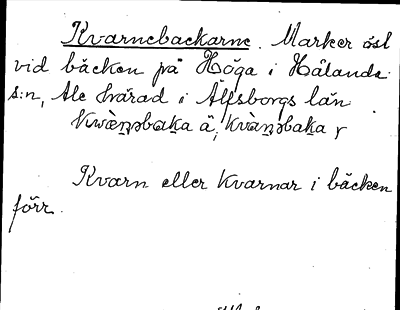 Kvarnebackarne. Marker ösl
vid bäcken på Höga i Hålanda
s:n, Ale härad i Älfsborgs län
kwàṉəbaḵa ä, kvàṉəbaḵa y
Kvarn eller kvarnar i bäcken
förr.